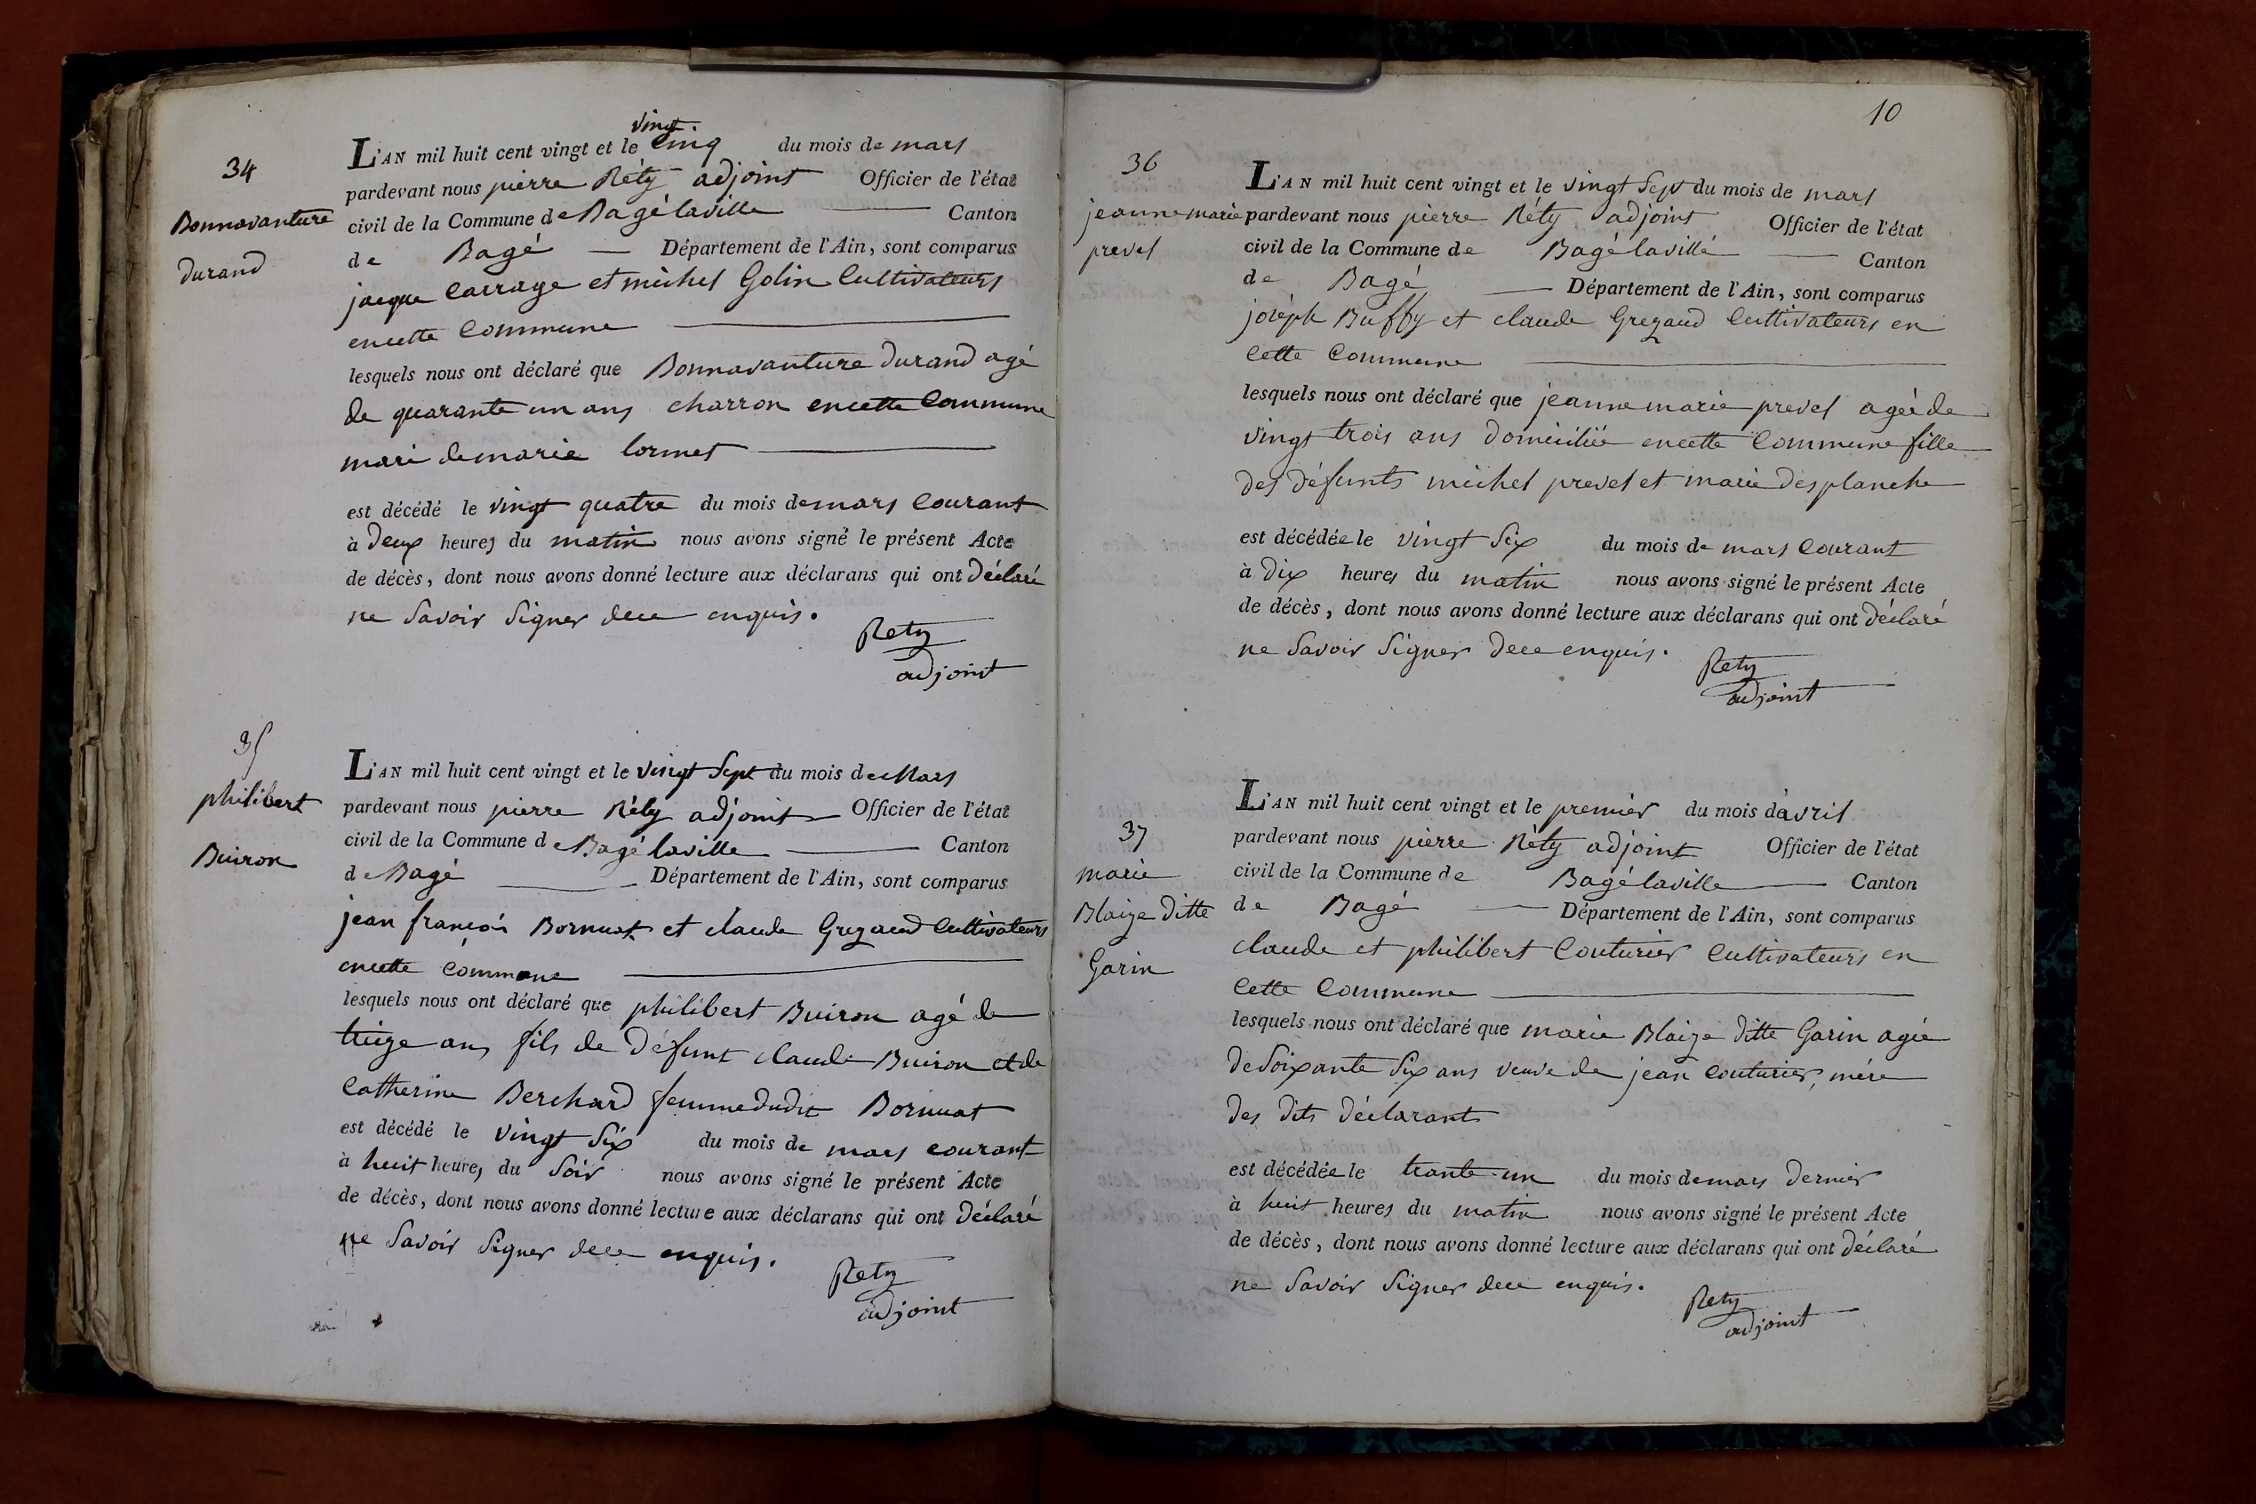 34
Bonnavanture
durand
vingt
L'AN mil huit cent vingt et le cinq du mois de mars
pardevant nous pierre Réty adjoint Officier de l'état
civil de la Commune de Bagé laville Canton
de Bagé Département de l'Ain, sont comparus
jacque Carrage et michel Golin Cultivateurs
encette Commune
lesquels nous ont déclaré que Bonnavanture durand agé
de quarante un ans charron encette Commune
mari de marie lormet
est décédé le vingt quatre du mois de mars Courant
à deux heures du matin nous avons signé le présent Acte
de décès, dont nous avons donné lecture aux déclarans qui ont déclaré
ne Savoir Signer dece enquis.
Rety
adjoint
35
philibert
Buiron
L'AN mil huit cent vingt et le vingt Sept du mois de Mars
pardevant nous pierre Réty adjoint Officier de l'état
civil de la Commune de Bagé laville Canton
de Bagé Département de l'Ain, sont comparus
jean françois Bornuat et claude Grezaud Cultivateurs
encette Commune
lesquels nous ont déclaré que philibert Buiron agé de
treize ans fils de défunt claude Buiron et de
Catherine Berchard femme dudit Bornuat
est décédé le vingt Six du mois de mars courant
à huit heures du Soir nous avons signé le présent Acte
de décès, dont nous avons donné lecture aux déclarans qui ont déclaré
ne Savoir Signer dece enquis.
Rety
adjoint
10
36
jeanne marie
prevel
L'AN mil huit cent vingt et le vingt Sept du mois de mars
pardevant nous pierre Réty adjoint Officier de l'état
civil de la Commune de Bagé laville Canton
de Bagé Département de l'Ain, sont comparus
joséph Buffy et claude Grezaud Cultivateurs en
Cette Commune
lesquels nous ont déclaré que jeanne marie prevel agée de
vingt trois ans domiciliée encette Commune fille
des défunts michel prevel et marie desplanche
est décédée le vingt Six du mois de mars Courant
à dix heures du matin nous avons signé le présent Acte
de décès, dont nous avons donné lecture aux déclarans qui ont déclaré
ne Savoir Signer dece enquis.
Rety
adjoint
37
marie
Blaize ditte
Garin
L'AN mil huit cent vingt et le premier du mois d'avril
pardevant nous pierre Réty adjoint Officier de l'état
civil de la Commune de Bagé laville Canton
de Bagé Département de l'Ain, sont comparus
claude et philibert Couturier Cultivateurs en
Cette Commune
lesquels nous ont déclaré que marie Blaize ditte Garin agée
de Soixante Six ans veuve de jean Couturier, mére
des dits déclarants
est décédée le trante un du mois de mars dernier
à huit heures du matin nous avons signé le présent Acte
de décès, dont nous avons donné lecture aux déclarans qui ont déclaré
ne Savoir Signer dece enquis.
Rety
adjoint